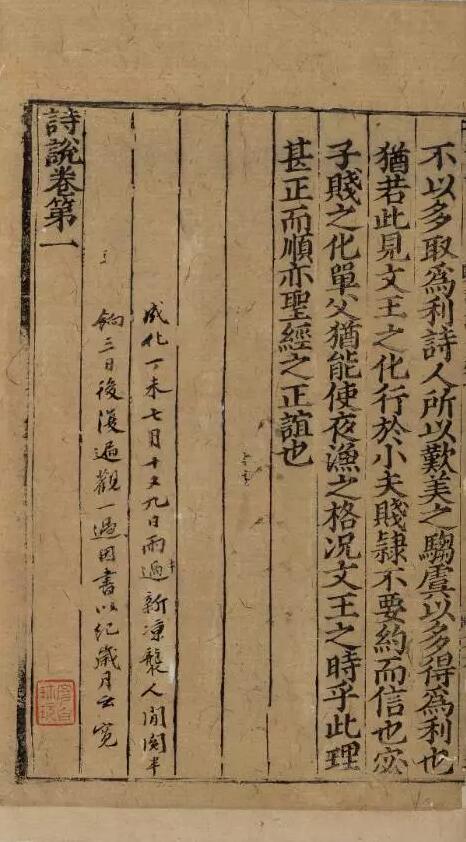 不以多取為利詩人所以歎美之騶虞以多得為利也
猶若此見文王之化行於小夫賤隸不要約而信也宓
子賤之化單父猶能使夜漁之格况文王之時乎此理
甚正而順亦聖經之正誼也
成化丁未七月十又九日雨過新凉襲人閒閱半
餉三日後復遍觀一過因書以紀歲月云寛
詩說卷第一